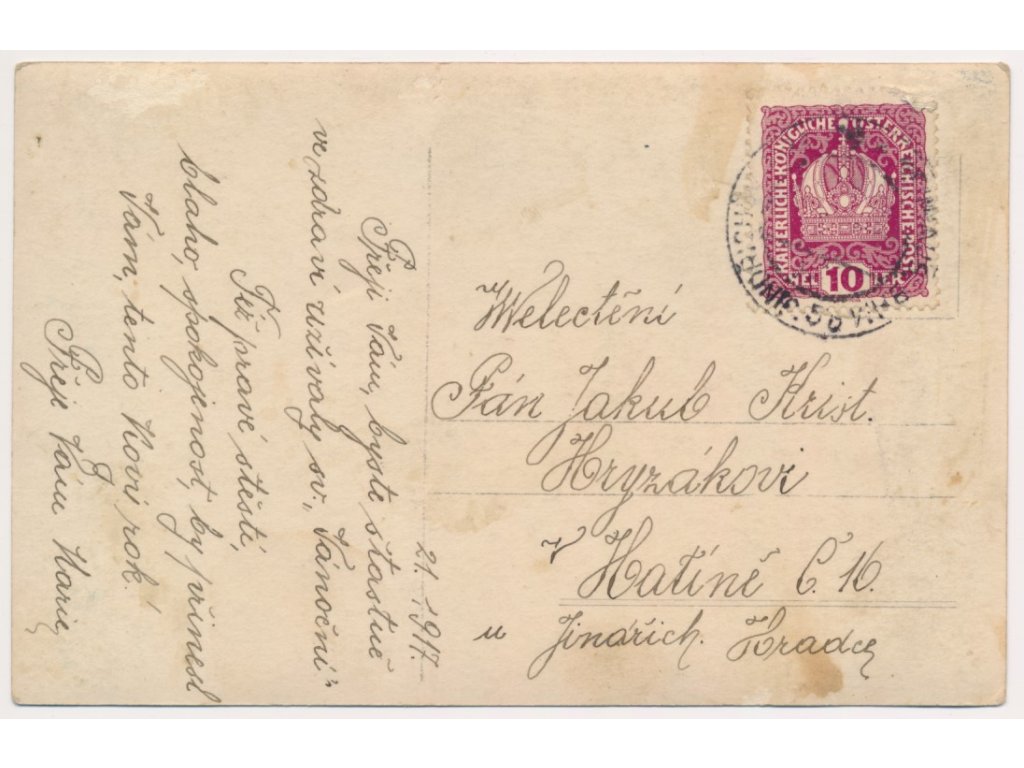 21. 1917.
Přeji Vám, byste stastně
ve zdraví užívaly sv., Vánoční
Též pravé štěstí,
blaho, spokojenost, by přinesl
Vám, tento Noví rok!
Přeje Vám Marie
KAISERLICHE KÖNIGLICHE ÖSTERREICHISCHE POST
10
Welectění
Pán Jakub Krist.
Hryzákovi
v Hatíně Č. 16.
u Jindřich. Hradce